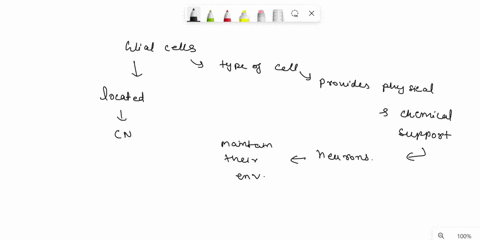 Glial cells
type of cell
provides physical
& chemical
support
located
CN
neurons.
maintain
their
env.
100%